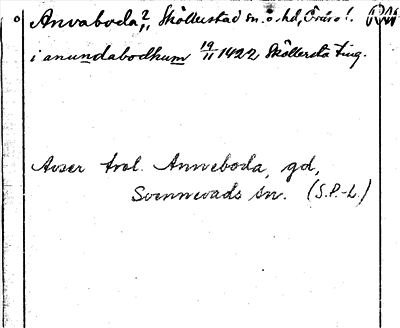 Anvaboda?, Sköllerstad sn. o. hd, Örebro l. RM
i anundabodhum 19/11 1422 Sköllersta ting.
Avser trol. Anneboda, gd,
Svennevads sn. (S.P.-L.)